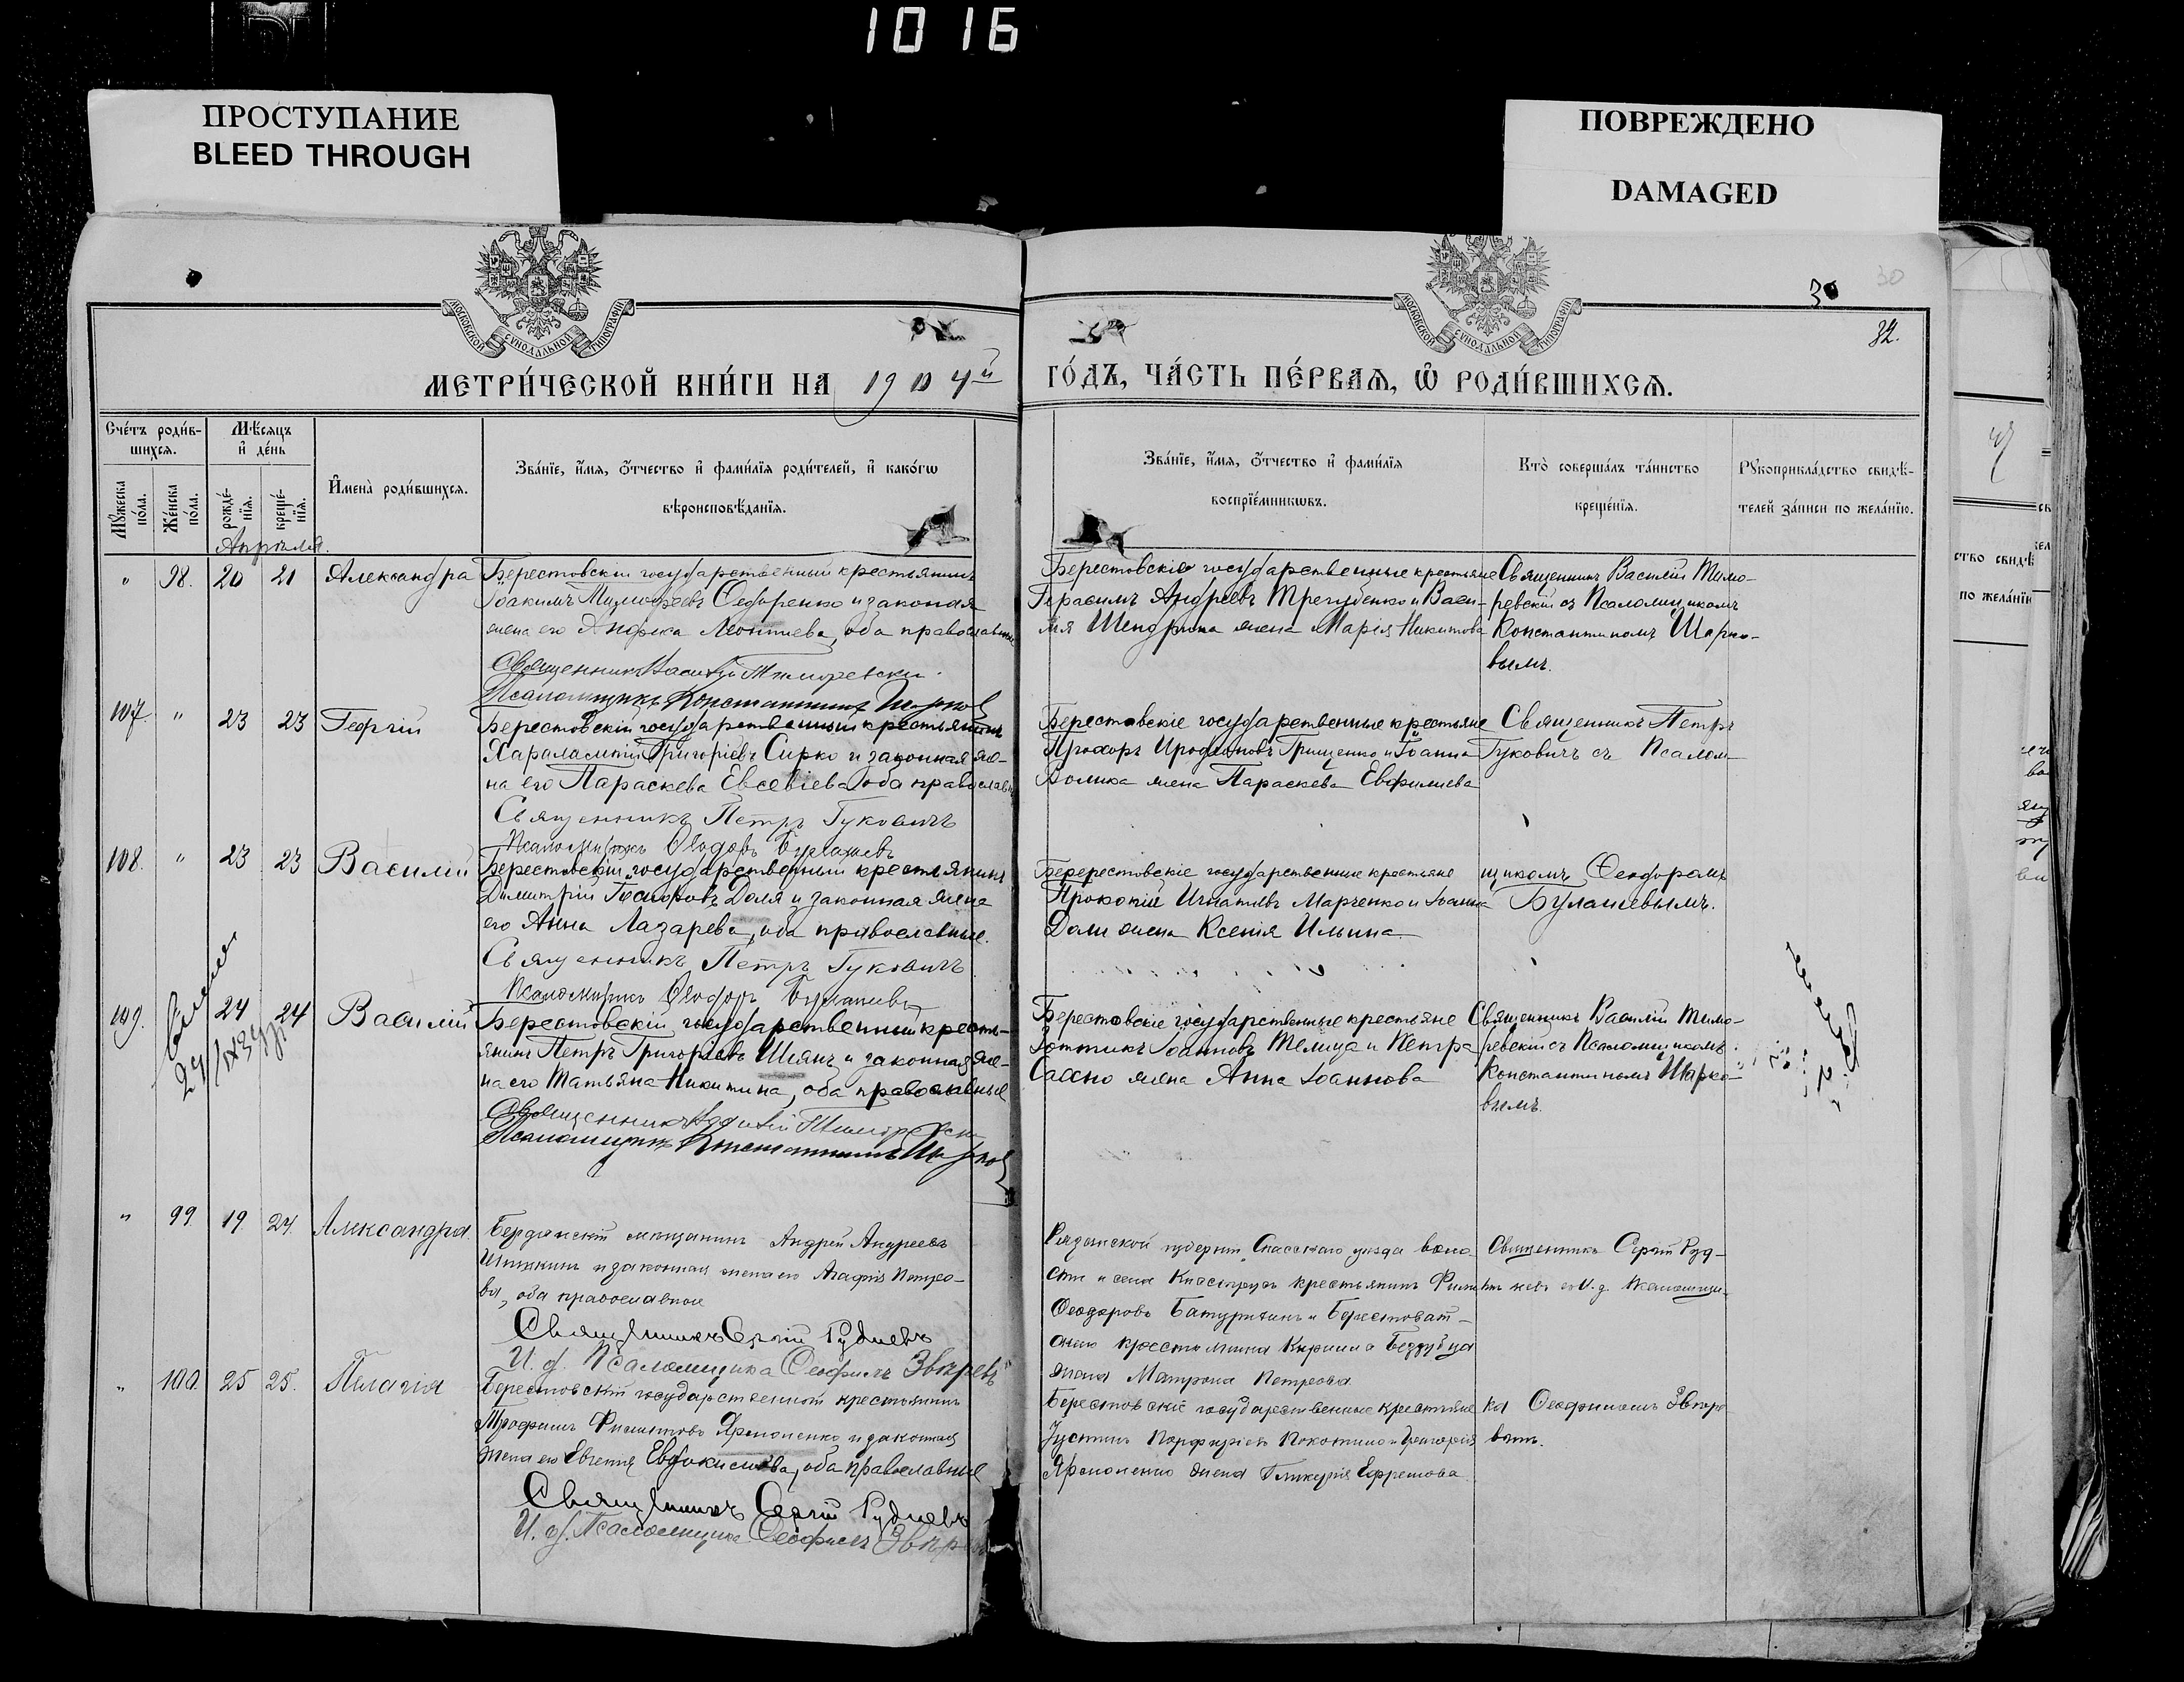 1016
ПРОСТУПАНИЕ
BLEED THROUGH
ПОВРЕЖДЕНО
DAMAGED
МОСКОВСКОЙ СѴНОДАЛЬНОЙ ТИПОГРАФІИ
МОСКОВСКОЙ СѴНОДАЛЬНОЙ ТИПОГРАФІИ
30
30
82.
МЕТРИ́ЧЕСКОЙ КНИ́ГИ НА 1904й
ГО́ДЪ, ЧА́СТЬ ПЕ́РВАѦ, Ѿ РОДИ́ВШИХСѦ.
Сче́тъ роди́в-
шихсѧ.
Мѣ́сѧцъ
и҆ де́нь
И҆мена̀ роди́вшихсѧ.
Зва́нїе, и҆́мѧ, ѻ҆́тчество и҆ фами́лїѧ роди́телей, и҆ како́гѡ
вѣроисповѣ́данїѧ.
Мꙋ́жеска
по́ла.
Же́нска
по́ла.
рожде́-
нїѧ.
креще́-
нїѧ.
Зва́нїе, и҆́мѧ, ѻ҆́тчество и҆ фами́лїѧ
воспрїе́мникѡвъ.
Кто̀ соверша́лъ та́инство
креще́нїѧ.
Рꙋкоприкла́дство свидѣ́-
телей за́писи по жела́нїю.
Апрѣля.
" 98. 20 21 Александра
Берестовскій государственный крестьянинъ
Іоакимъ Тимофеевъ Федоренко и законная
жена его Анфиса Леонтиева, оба православные
Священникъ Василій Тиморевскій
Псаломщикъ Константинъ Шарков
Берестовскіе государственные крестьяне
Герасимъ Андреевъ Трегубенко и Васи-
лія жена Марія Никитова
Священникъ Василій Тимо-
ревскій съ Псаломщикомъ
Константиномъ Шарко-
вымъ.
107 " 23 23 Георгій
Берестовскій государственный крестьянинъ
Харалампій Григоріевъ Сирко и законная же-
на его Параскева Евсевіева, оба православные
Священникъ Петръ Гуковичъ
Псаломщикъ Ѳеодоръ Булашевъ
Берестовскіе государственные крестьяне
Прохоръ Иродіоновъ Грищенко и Іоанна
Волика жена Параскева Евфимиева
Священникъ Петръ
Гуковичъ съ Псалом-
108. " 23 23 Василій
Берестовскій государственный крестьянинъ
Димитрій Доля и законная жена
его Анна Лазарева, оба православные.
Священникъ Петръ Гуковичъ
Псаломщикъ Ѳеодоръ Булашевъ
Береерестовскіе государственные крестьяне
Прокопій Игнатіевъ Марченко и Іоанна
Доли жена Ксенія Ильина
щикомъ Ѳеодоромъ
Булашевымъ.
109. 24 24 Василій
Берестовскій государственный кресть-
янинъ Петръ Григоріевъ Шіянъ и законная же-
на его Татьяна Никитина, оба православные
Священникъ Василій Тиморевскій
Псаломщикъ Константинъ Шарков
Берестовскіе государственные крестьяне
Зотикъ Іоанновъ Телица и Петра
Сахно жена Анна Іоаннова
Священникъ Василій Тимо-
ревскій съ Псаломщикомъ
Константиномъ Шарко-
вымъ.
" 99 19 24. Александра.
Бердянскій мещанинъ Андрей Андреевъ
Шишкинъ и законная жена его Агафія Петро-
ва, оба православные
Священникъ Сергій Рудневъ
И. д. Псаломщика Ѳеофилъ Звѣревъ
Рязанской губерніи Спасскаго уезда воло-
сти и села крестьянинъ
Ѳеодоровъ Батуринъ и Берестоват-
жена Матрона Петрова
Священникъ Сергій Руд-
невъ съ И. д. Псаломщи-
" 100. 25 25. Пелагія
Берестовскій государственный крестьянинъ
Трофимъ Филиповъ Ярмоленко и законная
жена его Евгенія Евдокимова, оба православные
Священникъ Сергій Рудневъ
И. д. Псаломщика Ѳеофилъ Звѣревъ
Берестовскіе государственные крестьяне
Іустинъ Порфиріевъ Покотило и Григорія
Ярмоленко жена Гликерія Ефремова
ка Ѳеофиломъ Звѣре-
вымъ.
ство свидѣ
по жела́нїю